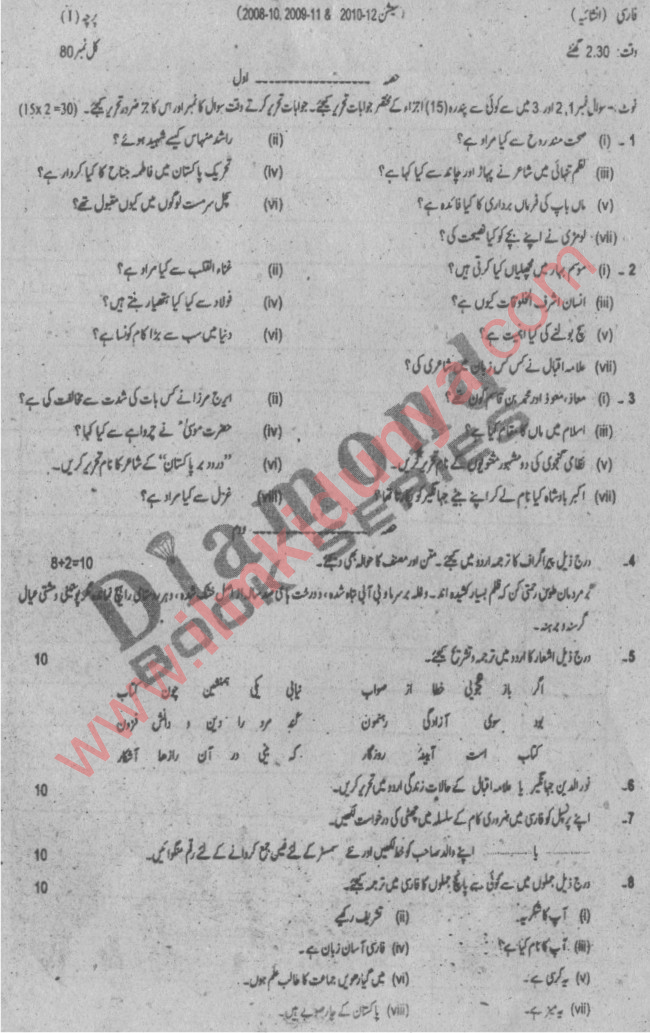 فارسی (انشائیہ) (سیشن 2010-12 & 2008-10, 2009-11) پرچہ (I)
وقت: 2.30 گھنٹے کل نمبر 80
حصہ اول
نوٹ:- سوال نمبر 1,2 اور 3 میں سے کوئی سے پندرہ (15) اجزاء کے مختصر جوابات تحریر کیجئے۔ جوابات تحریر کرتے وقت سوال کا نمبر اور اس کا جز ضرور تحریر کیجئے۔ (15x2=30)
1 - (i) صحت مند روح سے کیا مراد ہے؟ (ii) راشد منہاس کیسے شہید ہوئے؟
(iii) نظم تنہائی میں شاعر نے پہاڑ اور چاند سے کیا کہا ہے؟ (iv) تحریک پاکستان میں فاطمہ جناح کا کیا کردار ہے؟
(v) ماں باپ کی فرماں برداری کا کیا فائدہ ہے؟ (vi) سچل سرمست لوگوں میں کیوں مقبول تھے؟
(vii) لومڑی نے اپنے بچے کو کیا نصیحت کی؟
2 - (i) موسم بہار میں مچھلیاں کیا کرتی ہیں؟ (ii) غناء القلب سے کیا مراد ہے؟
(iii) انسان اشرف المخلوقات کیوں ہے؟ (iv) فولاد سے کیا کیا ہتھیار بنتے ہیں؟
(v) سچ بولنے کی کیا اہمیت ہے؟ (vi) دنیا میں سب سے بڑا کام کونسا ہے؟
(vii) علامہ اقبال نے کس کس زبان میں شاعری کی؟
3 - (i) معاذ، معوذ اور محمد بن قاسم کون تھے؟ (ii) ایرج مرزا نے کس بات کی شدت سے مخالفت کی ہے؟
(iii) اسلام میں ماں کا مقام کیا ہے؟ (iv) حضرت موسیٰ نے چرواہے سے کیا کہا؟
(v) نظامی گنجوی کی دو مشہور مثنویوں کے نام تحریر کریں۔ (vi) "درود بر پاکستان" کے شاعر کا نام تحریر کریں۔
(vii) اکبر بادشاہ کیا نام لے کر اپنے بیٹے جہانگیر کو پکارتا تھا؟ (viii) غزل سے کیا مراد ہے؟
حصہ دوم
4۔ درج ذیل پیراگراف کا ترجمہ اردو میں کیجئے۔ متن اور مصنف کا حوالہ بھی دیجئے۔ 8+2=10
بر مردمان طوس رحمتی کن کہ ظلم بسیار کشیدہ اند۔ وغلہ بہ سرما و بی آبی تباہ شدہ، و درخت ہای صد سالہ از اصل خشک شدہ، و ہر روستائی را ہیچ نماندہ مگر پوستینی و مشتی عیال
گرسنہ و برہنہ۔
5۔ درج ذیل اشعار کا اردو میں ترجمہ و تشریح کیجئے۔ 10
اگر باز جوئی خطا از صواب نیابی یکی ہمنشین چون کتاب
بود سوی آزادگی رہنمون کند مرد را دین و دانش فزون
کتاب است آیینہ روزگار کہ بینی در آن رازہا آشکار
6۔ نورالدین جہانگیر یا علامہ اقبال کے حالات زندگی اردو میں تحریر کریں۔ 10
7۔ اپنے پرنسپل کو فارسی میں ضروری کام کے سلسلہ میں چھٹی کی درخواست لکھیں۔
یا اپنے والد صاحب کو خط لکھیں اور نئے سمسٹر کے لئے فیس جمع کروانے کے لئے رقم منگوائیں۔ 10
8۔ درج ذیل جملوں میں سے کوئی سے پانچ جملوں کا فارسی میں ترجمہ کیجئے۔ 10
(i) آپ کا شکریہ۔ (ii) تشریف رکھیے
(iii) آپ کا نام کیا ہے؟ (iv) فارسی آسان زبان ہے۔
(v) یہ کرسی ہے۔ (vi) میں گیارھویں جماعت کا طالب علم ہوں۔
(vii) یہ میز ہے۔ (viii) پاکستان کے چار صوبے ہیں۔
Diamond
BOOK SERIES
www.ilmkidunya.com